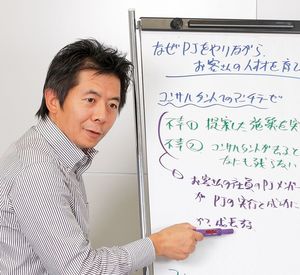 なぜPJをやりながら、
お客さんの人材を育て
コンサルタントのアンチテーゼ
① 提案した施策を実
② コンサルタントが去ると
なにも残らない
お客さんの社員のPJメンバ
が PJの実行と成功に
かつ 成長する